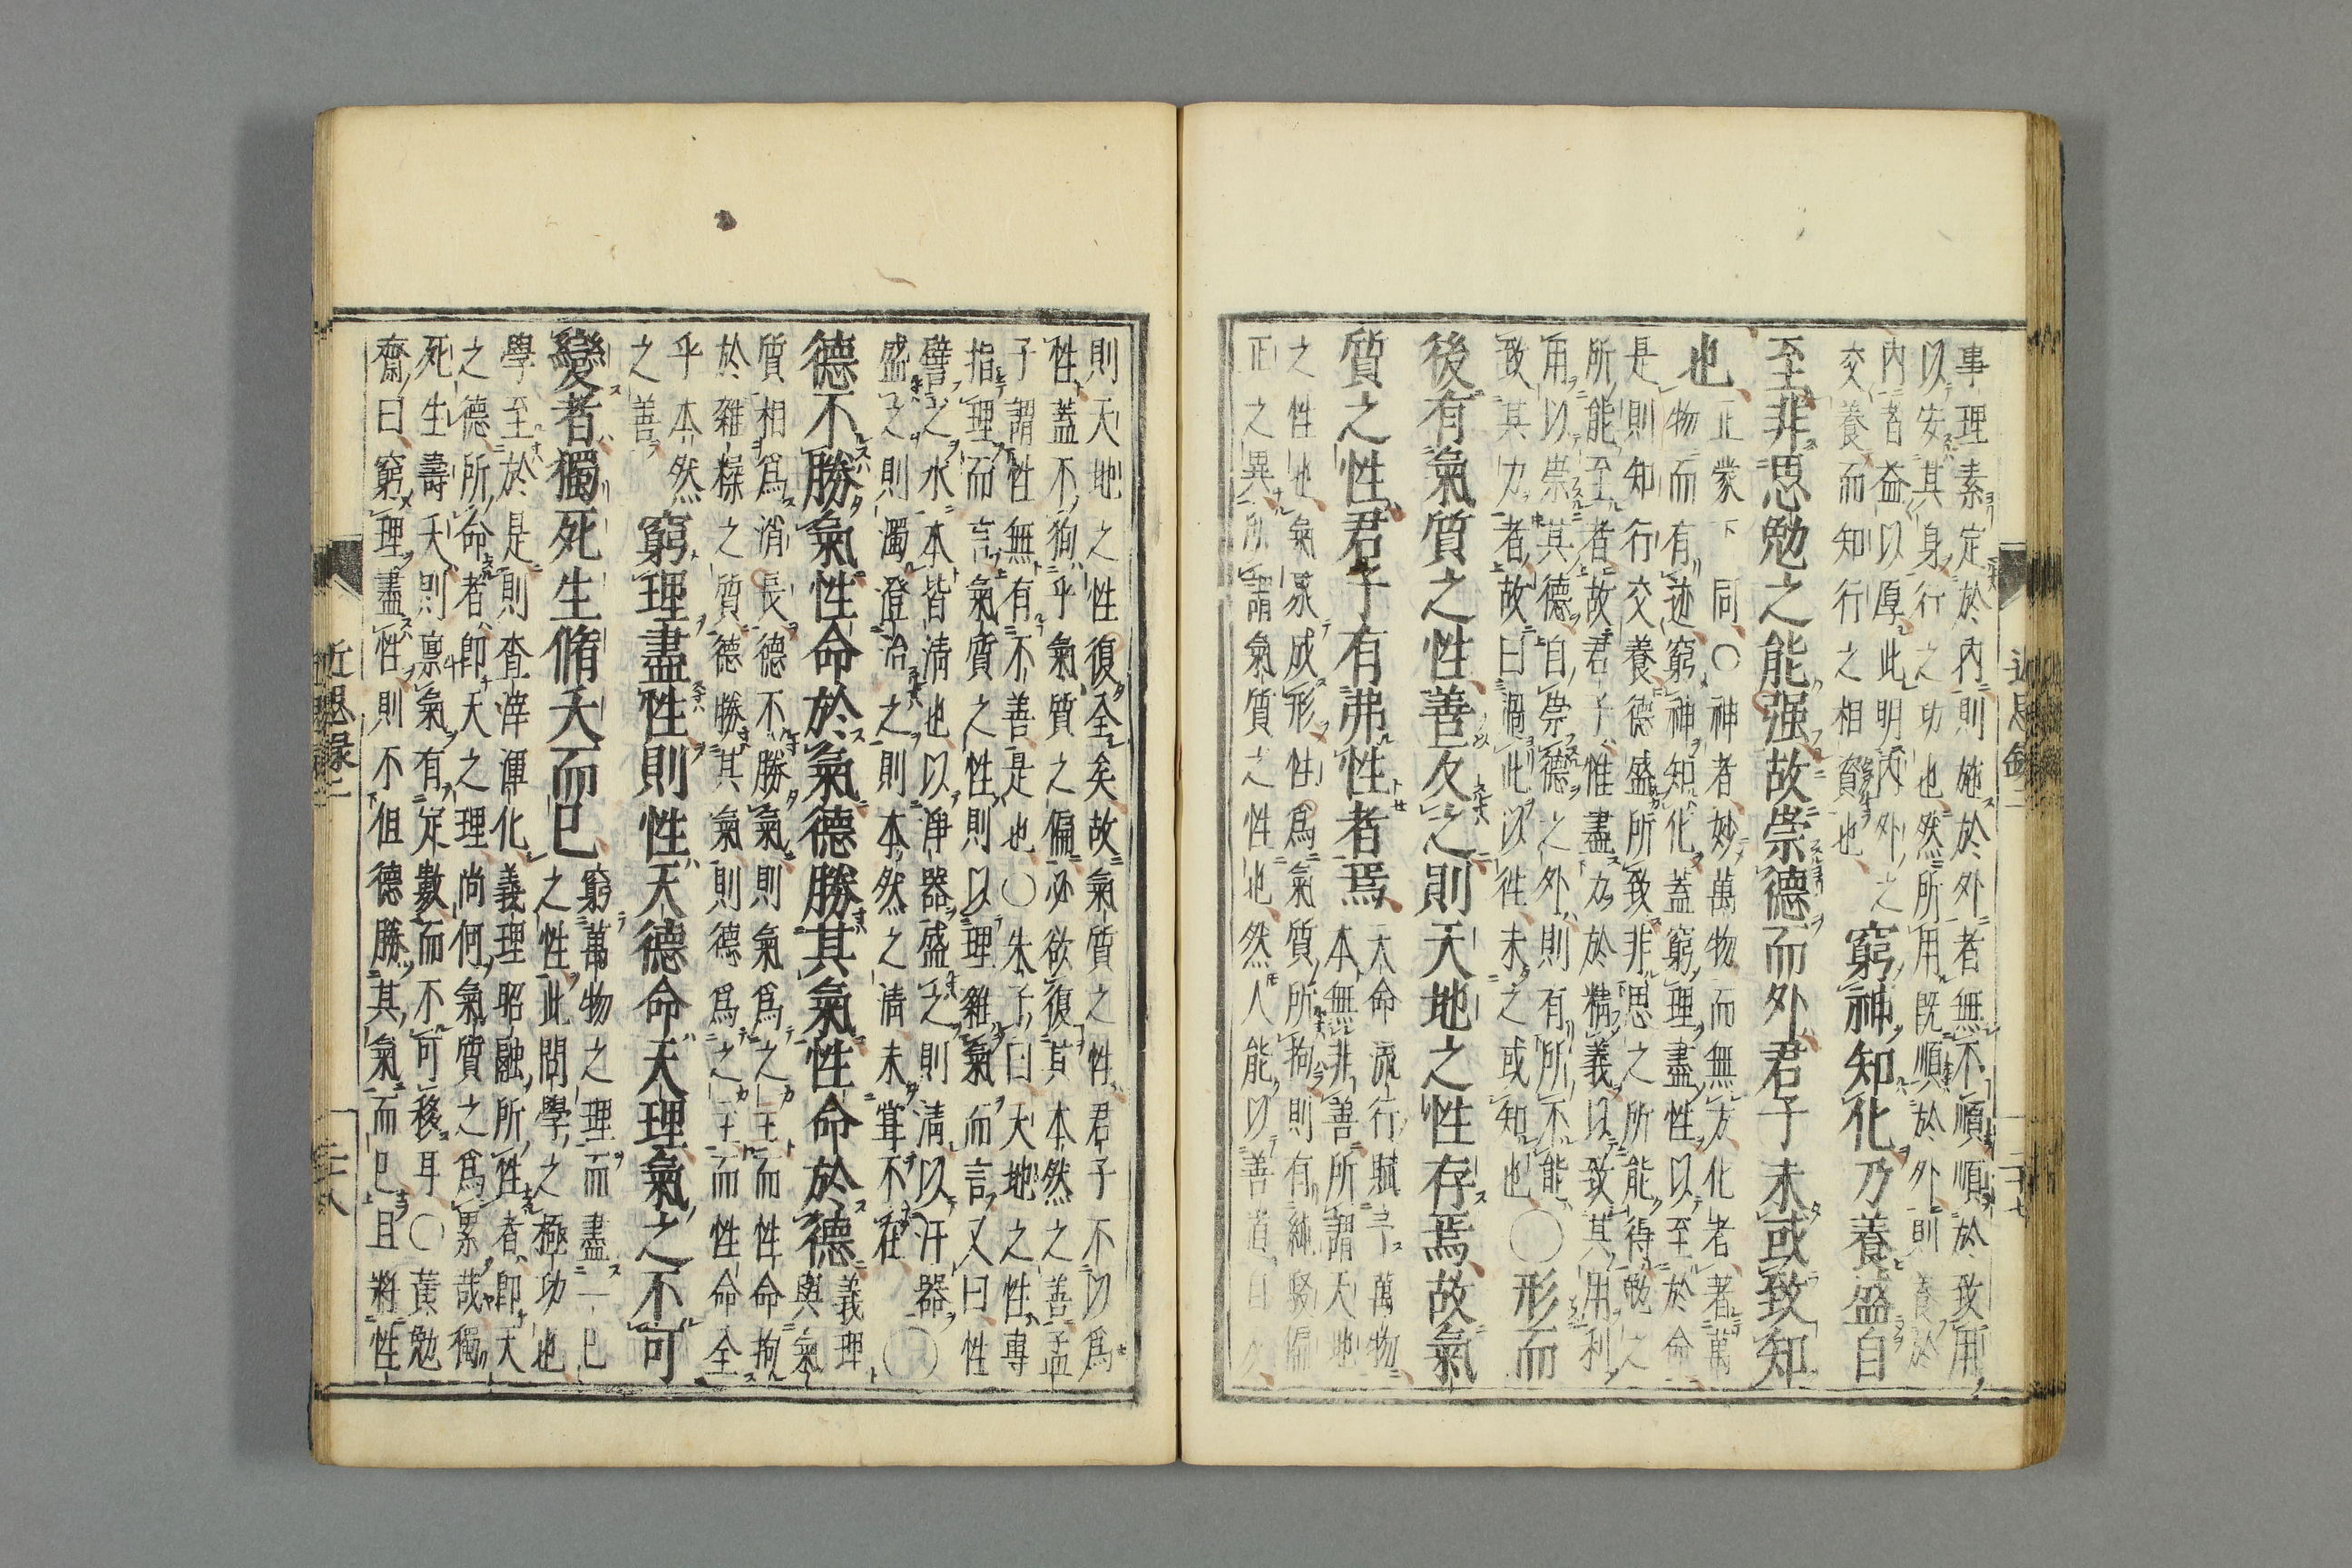 事理素定於內則施於外者無不順順於致用
以安其身行之功也然所用既順於外則養於
內者益以厚此明內外之
交養而知行之相資也
窮神知化乃養盛自
至非思勉之能强故崇德而外君子未或致知
也
正蒙下同○神者妙萬物而無方化者著萬
物而有迹窮神知化蓋窮理盡性以至於命
是則知行交養德盛所致非思之所能得勉之
所能至者故君子惟盡力於精義以致其用利
用以崇其德自崇德之外則有所不能
致其力者故曰過此以徃未之或知也
○形而
後有氣質之性善反之則天地之性存焉故氣
質之性君子有弗性者焉
天命流行賦予萬物
本無非善所謂天地
之性也氣聚成形性爲氣質所拘則有純駁偏
正之異所謂氣質之性也然人能以善道自反
則天地之性復全矣故氣質之性君子不以爲
性蓋不狥乎氣質之偏必欲復其本然之善孟
子謂性無有不善是也○朱子曰天地之性專
指理而言氣質之性則以理雜氣而言又曰性
譬之水本皆清也以净器盛之則清以汙器
盛之則濁澄治之則本然之清未甞不在
○
德不勝氣性命於氣德勝其氣性命於德
義理
與氣
質相爲消長德不勝氣則氣爲之主而性命拘
於雜糅之質德勝其氣則德爲之主而性命全
乎本然
之善
窮理盡性則性天德命天理氣之不可
變者獨死生脩夭而已
窮萬物之理而盡一已
之性此問學之極功也
學至於是則査滓渾化義理昭融所性者即天
之德所命者即天之理尚何氣質之爲累哉獨
死生壽夭則禀氣有定數而不可移耳○黃勉
齋曰窮理盡性則不但德勝其氣而已且將性
近思錄二
二十七
近思録二
二十八